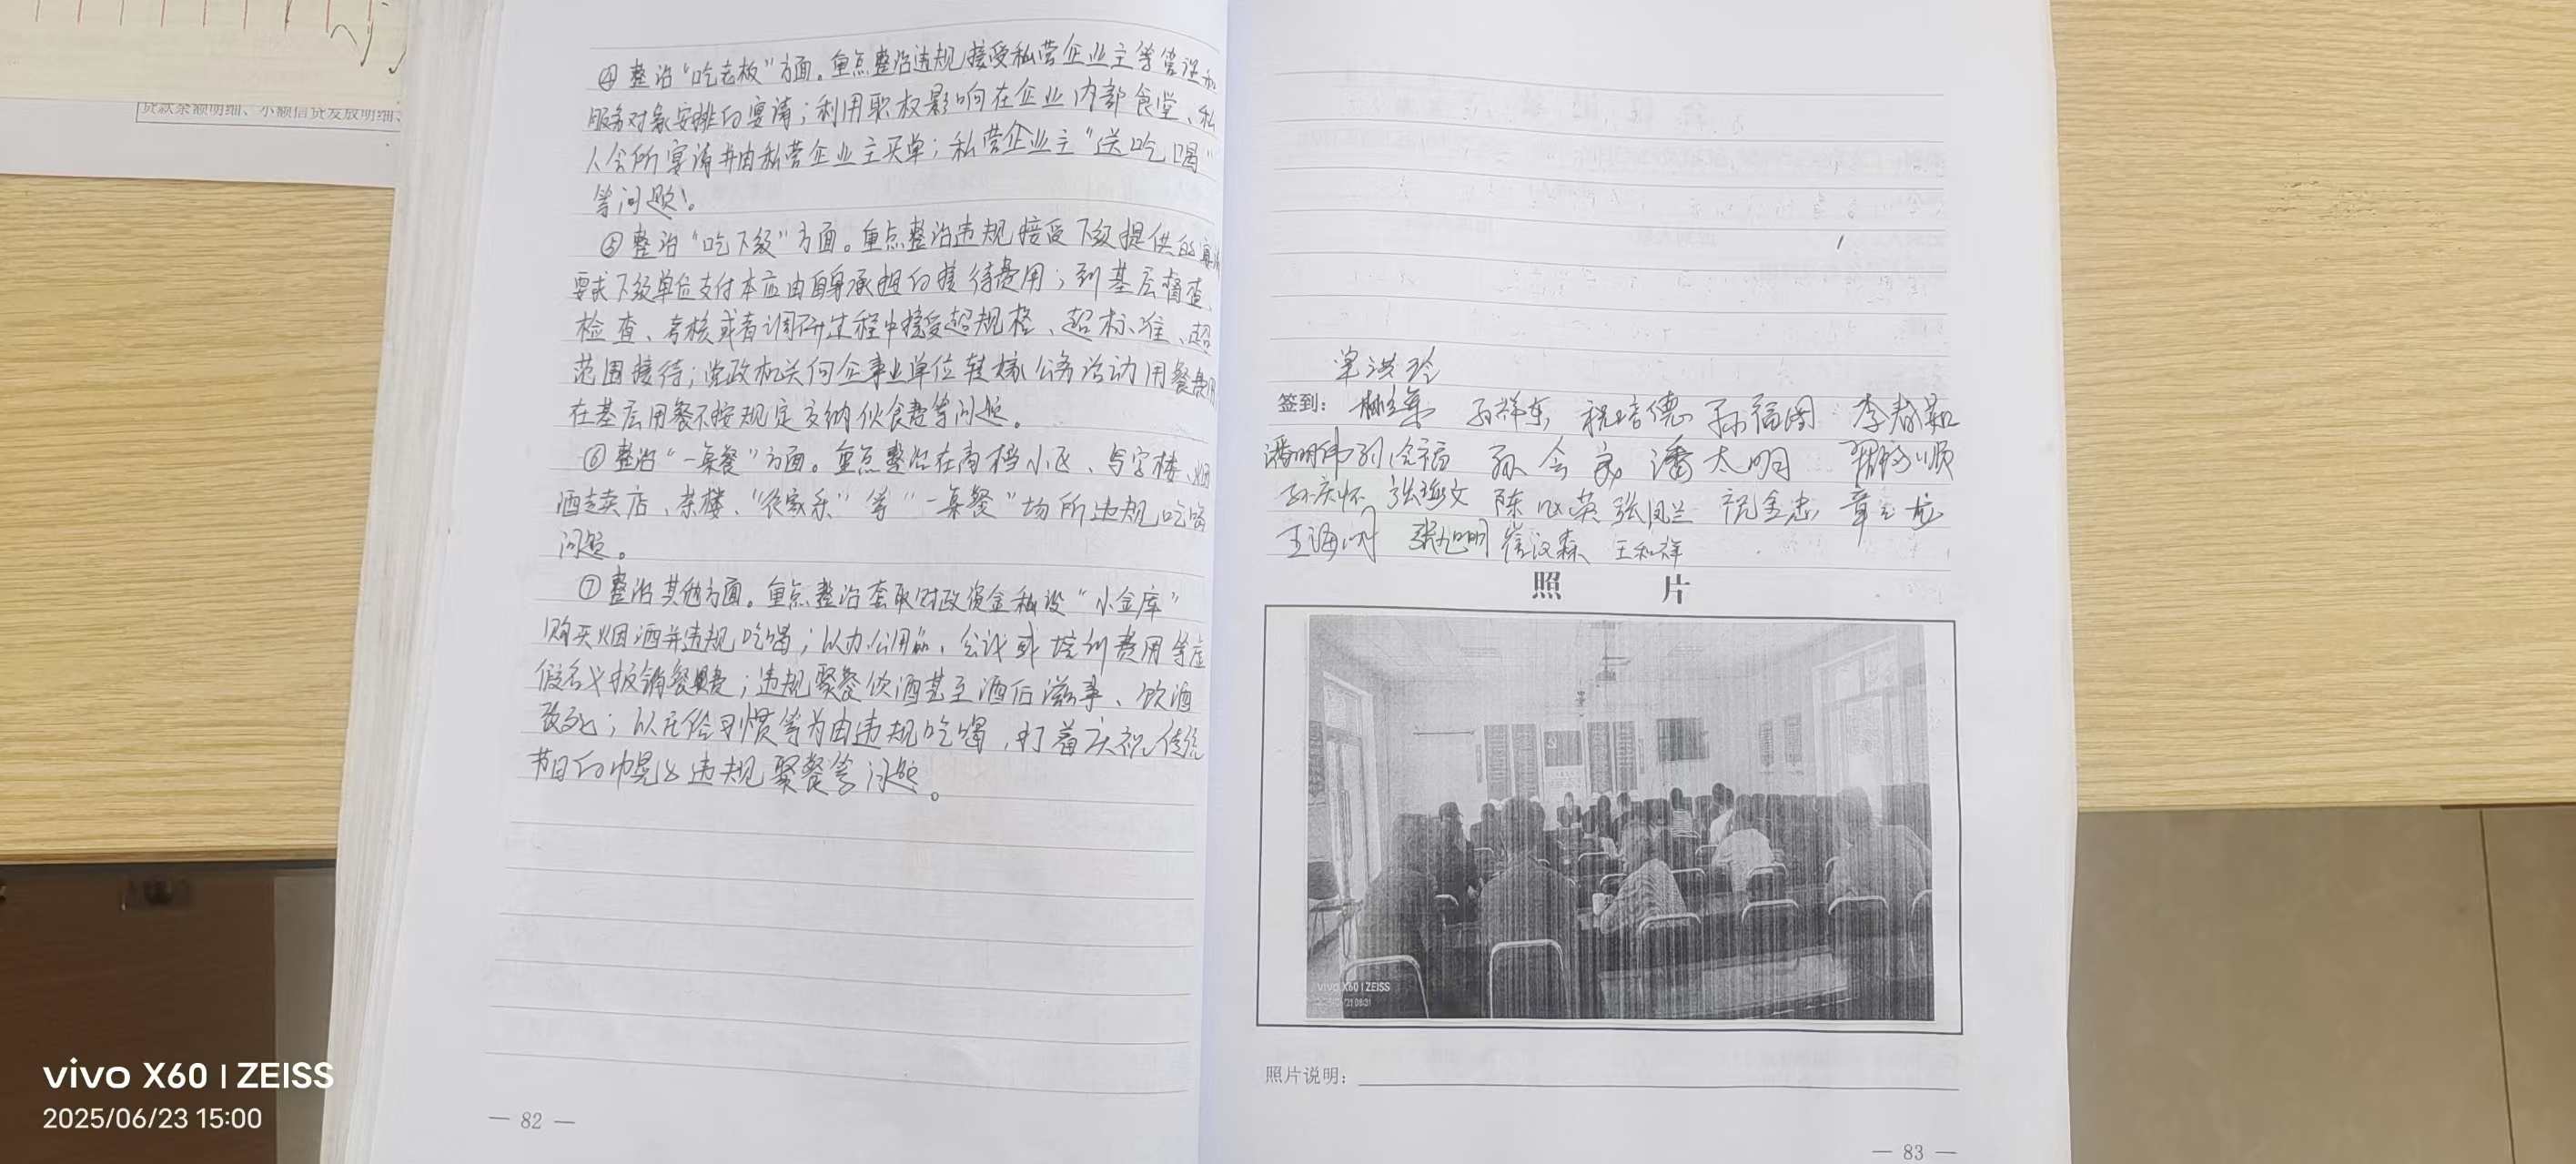 贷款余额明细、小额信贷发放明细、
④整治“吃老板”方面。重点整治违规接受私营企业主等管理和
服务对象安排的宴请；利用职权影响在企业内部食堂、私
人会所宴请并由私营企业主买单；私营企业主“送吃喝”
等问题。
⑤整治“吃下级”方面。重点整治违规接受下级提供的宴请
要求下级单位支付本应由自身承担的接待费用；到基层督查、
检查、考核或者调研过程中接受超规格、超标准、超
范围接待；党政机关向企事业单位转嫁公务活动用餐费用
在基层用餐不按规定交纳伙食费等问题。
⑥整治“一桌餐”方面。重点整治在高档小区、写字楼、烟
酒专卖店、茶楼、“农家乐”等“一桌餐”场所违规吃喝
问题。
⑦整治其他方面。重点整治套取财政资金私设“小金库”
购买烟酒并违规吃喝；以办公用品、会议或培训费用等虚
假名义报销餐费；违规聚餐饮酒甚至酒后滋事、饮酒
致死；以民俗习惯等为由违规吃喝，打着庆祝传统
节日的幌子违规聚餐等问题。
— 82 —
单洪玲
签到： 孙祥东 祝培德 孙福国 李春
潘明伟 孙会家 潘太明
孙庆怀 张 文 陈 英 张凤兰 祝金忠 章
王海 张旭明 崔汉森 王和祥
照 片
vivo X60 | ZEISS
照片说明：
— 83 —
vivo X60 | ZEISS
2025/06/23 15:00